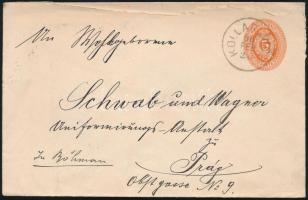 An Wohlgeborene
Schwab und Wagner
Uniformirungs-Anstalt
zu
In Böhmen
Prag
Obstgasse No 9.